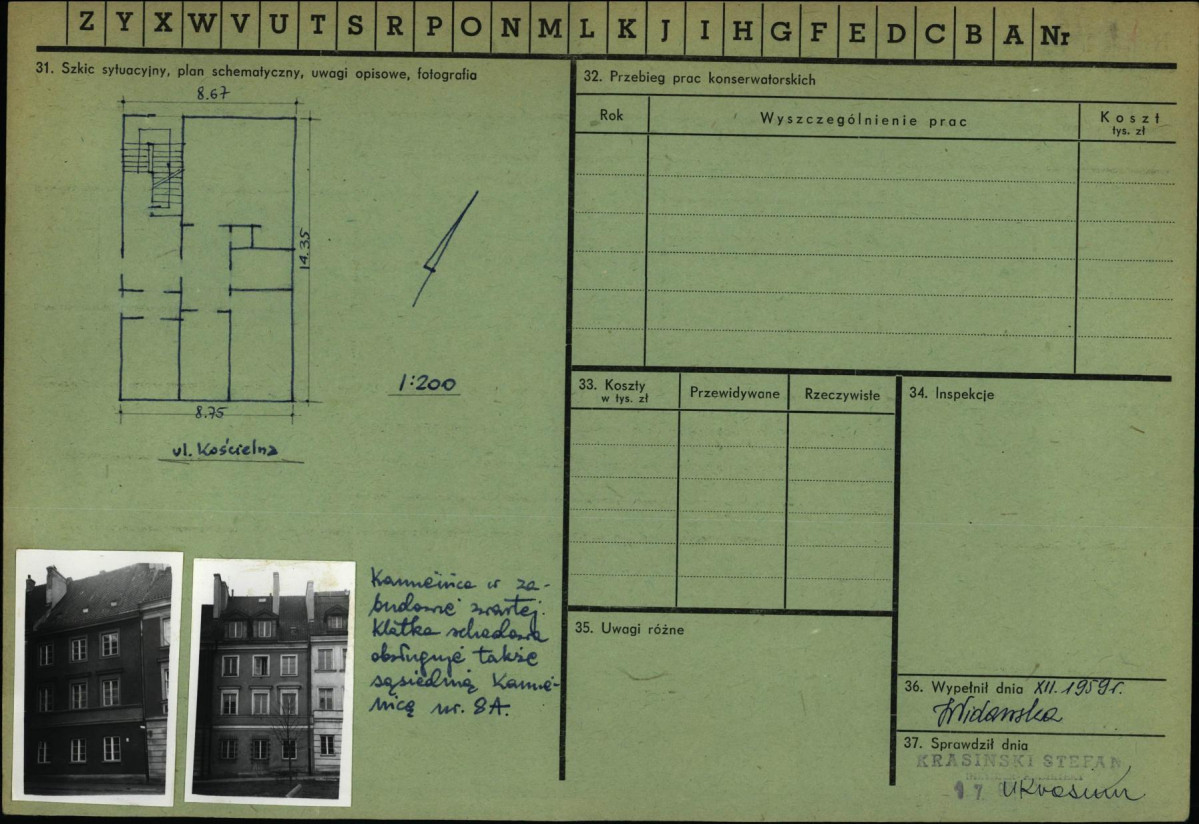 Z Y X W V U T S R P O N M L K J I H G F E D C B A Nr
31. Szkic sytuacyjny, plan schematyczny, uwagi opisowe, fotografia
8.67
14.35
1:200
8.75
ul. Kościelna
Kamienica w za-
budowie zwartej.
Klatka schodowa
obsługuje także
sąsiednią kamie-
nicę nr. 8A.
32. Przebieg prac konserwatorskich
Rok
Wyszczególnienie prac
Koszt
tys. zł
33. Koszty
w tys. zł
Przewidywane
Rzeczywiste
34. Inspekcje
35. Uwagi różne
36. Wypełnił dnia XII. 1959r.
JWidawska
37. Sprawdził dnia
KRASIŃSKI STEFAN
17